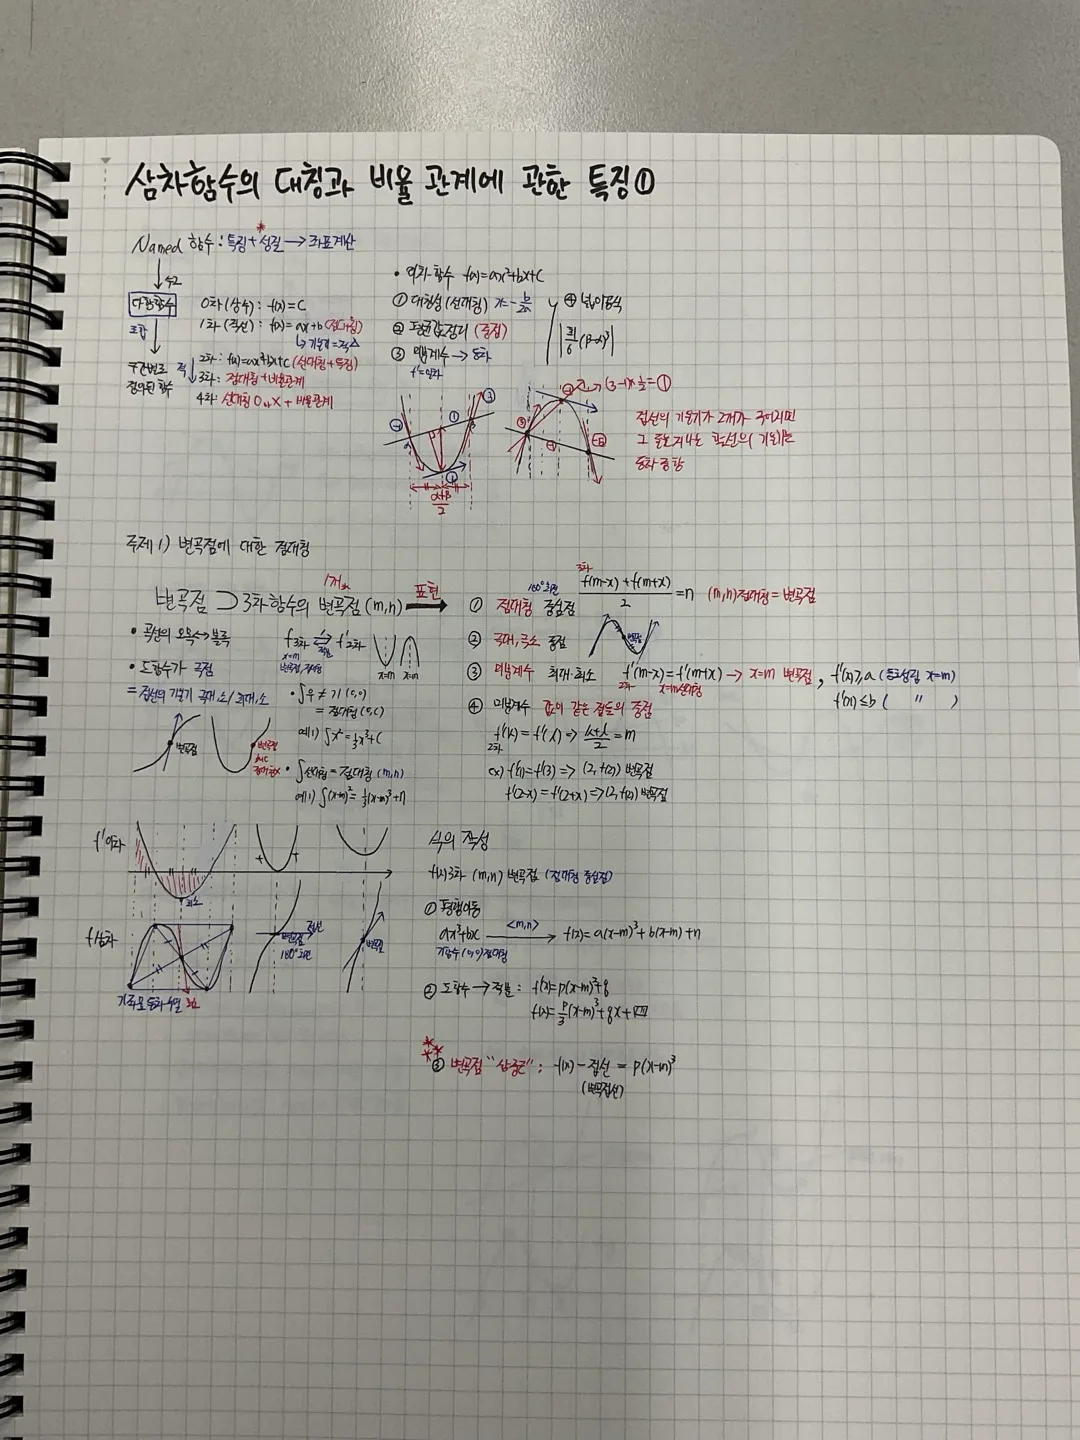 삼차함수의 대칭과 비율 관계에 관한 특징①
Named 함수 : 특징 + 성질 → 좌표계산
다항함수
0차(상수) : f(x) = C
1차(직선) : f(x) = ax+b (점대칭)
↳ 기울기 =
2차 : f(x)=ax²+bx+c (선대칭+특징)
3차 : 점대칭+비율관계
4차 : 선대칭 O, X + 비율관계
조합
구간별로
정의된 함수
• 이차함수 f(x)=ax²+bx+c
① 대칭성(선대칭) x=-b/2a
② 평균값정리 (중점)
③ 미분계수 → 등차
f'=일차
④ 넓이공식
|a|/6 (β-α)³
α+β/2
(3-1)×½=①
접선의 기울기가 2개가 주어지면
주제 1) 변곡점에 대한 점대칭
변곡점 ⊃ 3차함수의 변곡점 (m,n)
1개
표현
• 곡선의 오목↔볼록
• 도함수가 극점
= 접선의 기울기 극대,소/최대,소
변곡점
f 3차 ⇄ f' 2차
x=m
x=m x=m
• ∫우 ≠ 기 (0,0)
= 점대칭 (0,C)
예1) ∫x² = ⅓x³+C
• ∫선대칭 = 점대칭 (m,n)
예1) ∫(x-m)² = ⅓(x-m)³+n
① 점대칭 중심점 f(m-x)+f(m+x)/2 = n (m,n)점대칭 = 변곡점
180°회전
3차
② 극대, 극소 중점
변곡점
③ 미분계수 최대·최소 f'(m-x)=f'(m+x) → x=m 변곡점, f'(x)≥a (등호성립 x=m)
2차 x=m선대칭
f'(x)≤b ( " )
④ 미분계수 값이 같은 점들의 중점
f'(k)=f'(l) => k+l/2 = m
2차
ex) f'(1)=f'(3) => (2, f(2)) 변곡점
f'(2-x)=f'(2+x) => (2, f(2)) 변곡점
f' 이차
최소
f 삼차
변곡점
180°회전
접선
변곡점
식의 작성
f(x) 3차 (m,n) 변곡점 (점대칭 중심점)
① 평행이동
ax³+bx <m,n> → f(x)=a(x-m)³+b(x-m)+n
기함수 (0,0)점대칭
② 도함수 → 적분 : f'(x)=p(x-m)²+q
f(x)=p/3(x-m)³+qx+
③ 변곡점 "삼중근" : f(x)-접선 = p(x-m)³
(변곡접선)